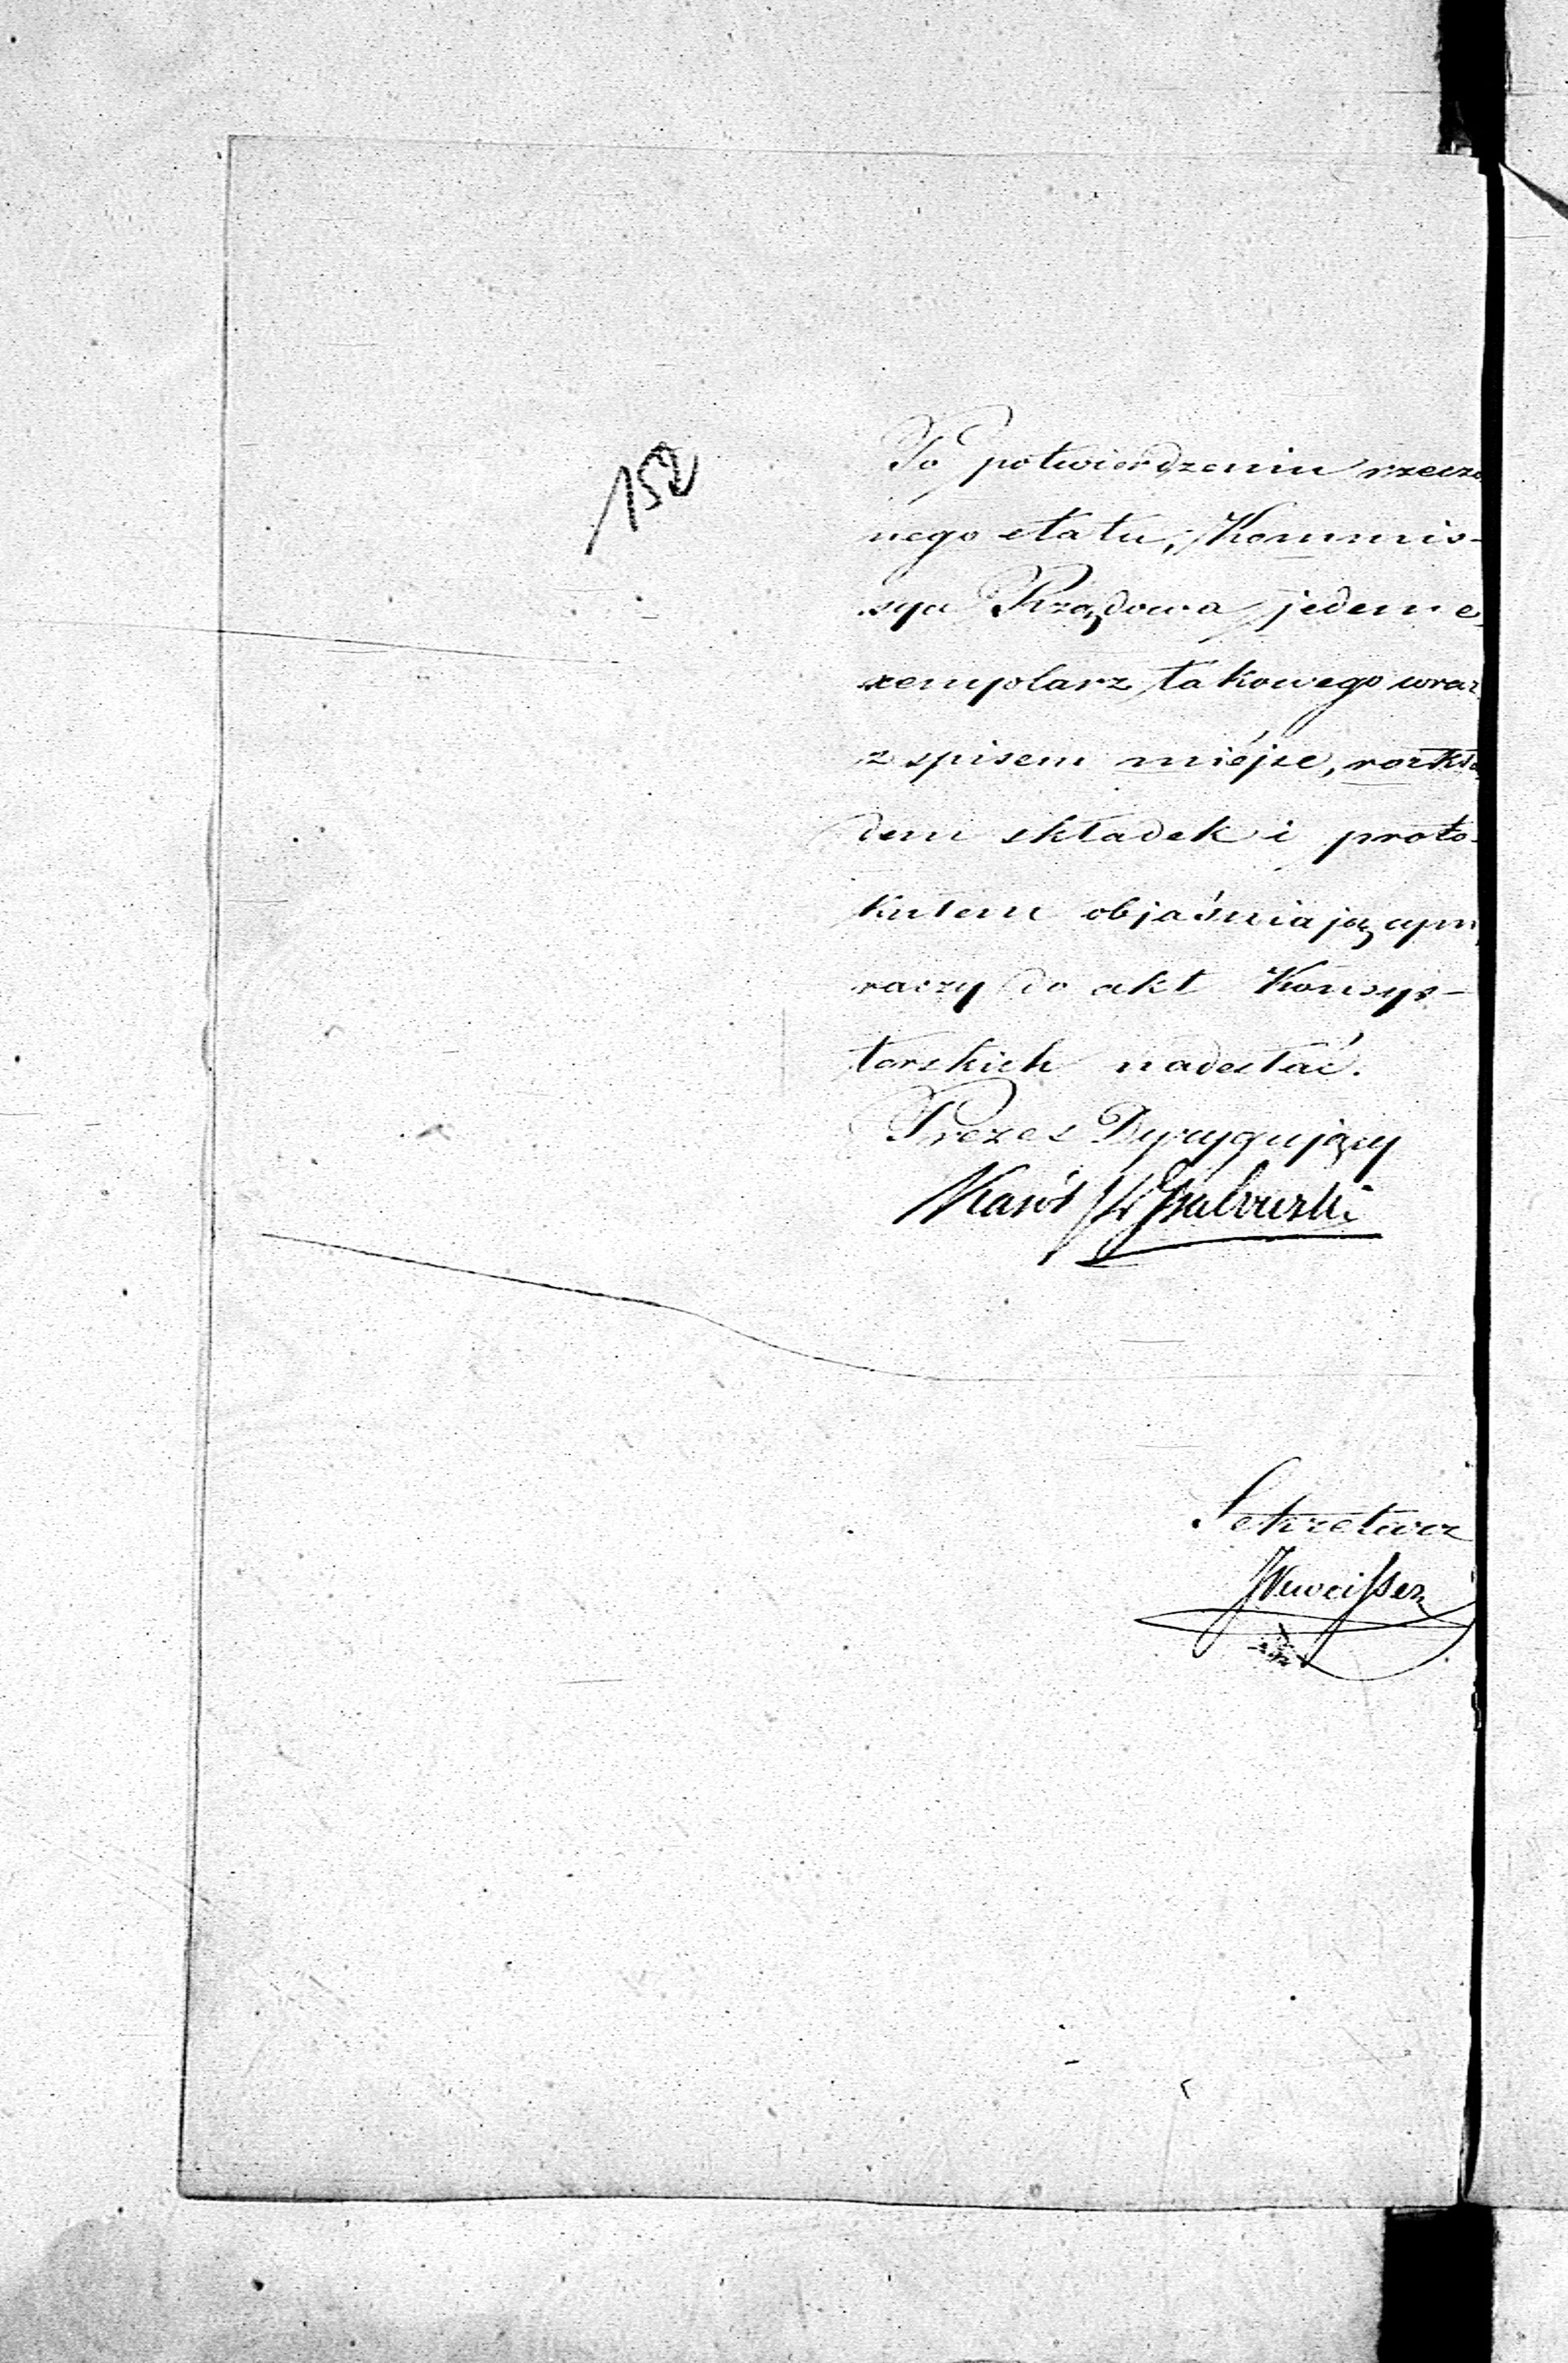 152
Po potwierdzeniu rzeczo
nego etatu, Kommis-
sya Rządowa jeden e
xemplarz takowego wraz
z spisem miéjsc, rozkła
dem składek i proto-
kułem objaśniającym,
raczy do akt Konsys-
torskich nadesłać.
Prezes Dyrygujący
Sekretarz